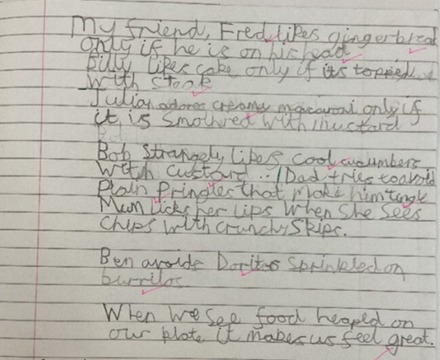 My friend, Fred, likes gingerbread
only if he is on his head
Billy likes cake only if its topped
with
Julian adores creamy macaroni only if
it is smothred with mustard
Bob strangely likes cool cucumbers
with custard.. Dad tries to avoid
plain Pringles that make him
Mum licks her lips when she sees
chips with crunchy skips.
Ben avoids Doritos sprinkled on
burritos
When we see food heaped on
our plate it makes us feel great.